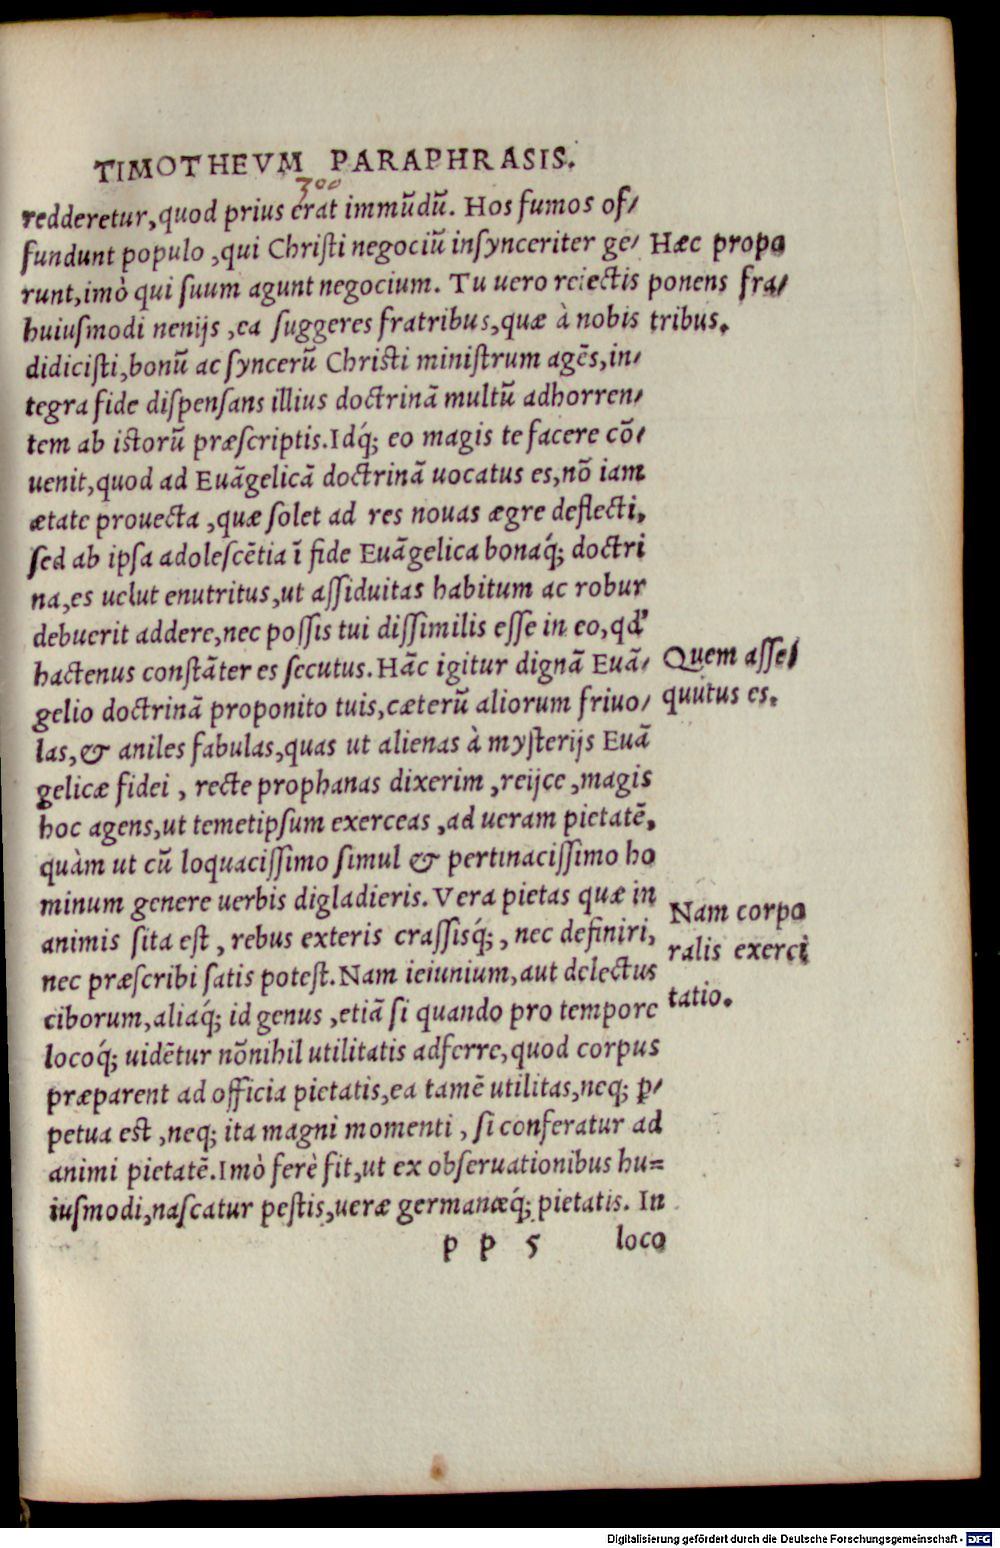 TIMOTHEVM PARAPHRASIS.
300
redderetur, quod prius erat immūdū. Hos fumos of/
fundunt populo, qui Christi negociū insynceriter ge/
runt, imò qui suum agunt negocium. Tu uero reiectis
huiusmodi nenijs, ea suggeres fratribus, quæ à nobis
didicisti, bonū ac syncerū Christi ministrum agēs, in/
tegra fide dispensans illius doctrinā multū adhorren/
tem ab istorū præscriptis. Idq́; eo magis te facere cō/
uenit, quod ad Euāgelicā doctrinā uocatus es, nō iam
ætate prouecta, quæ solet ad res nouas ægre deflecti,
sed ab ipsa adolescētia ī fide Euāgelica bonaq́; doctri
na, es uelut enutritus, ut assiduitas habitum ac robur
debuerit addere, nec possis tui dissimilis esse in eo, qd'
hactenus constāter es secutus. Hāc igitur dignā Euā/
gelio doctrinā proponito tuis, cæterū aliorum friuo/
las, & aniles fabulas, quas ut alienas à mysterijs Euā
gelicæ fidei, recte prophanas dixerim, reijce, magis
hoc agens, ut temetipsum exerceas, ad ueram pietatē,
quàm ut cū loquacissimo simul & pertinacissimo ho
minum genere uerbis digladieris. Vera pietas quæ in
animis sita est, rebus exteris crassisq́;, nec definiri,
nec præscribi satis potest. Nam ieiunium, aut delectus
ciborum, aliaq́; id genus, etiā si quando pro tempore
locoq́; uidētur nōnihil utilitatis adferre, quod corpus
præparent ad officia pietatis, ea tamē utilitas, neq; p̱/
petua est, neq; ita magni momenti, si conferatur ad
animi pietatē. Imò ferè fit, ut ex obseruationibus hu=
iusmodi, nascatur pestis, ueræ germanæq́; pietatis. In
pp 5 loco
Hæc propo
ponens fra/
tribus.
Quem asse/
quutus es.
Nam corpo
ralis exerci
tatio.
Digitalisierung gefördert durch die Deutsche Forschungsgemeinschaft - DFG